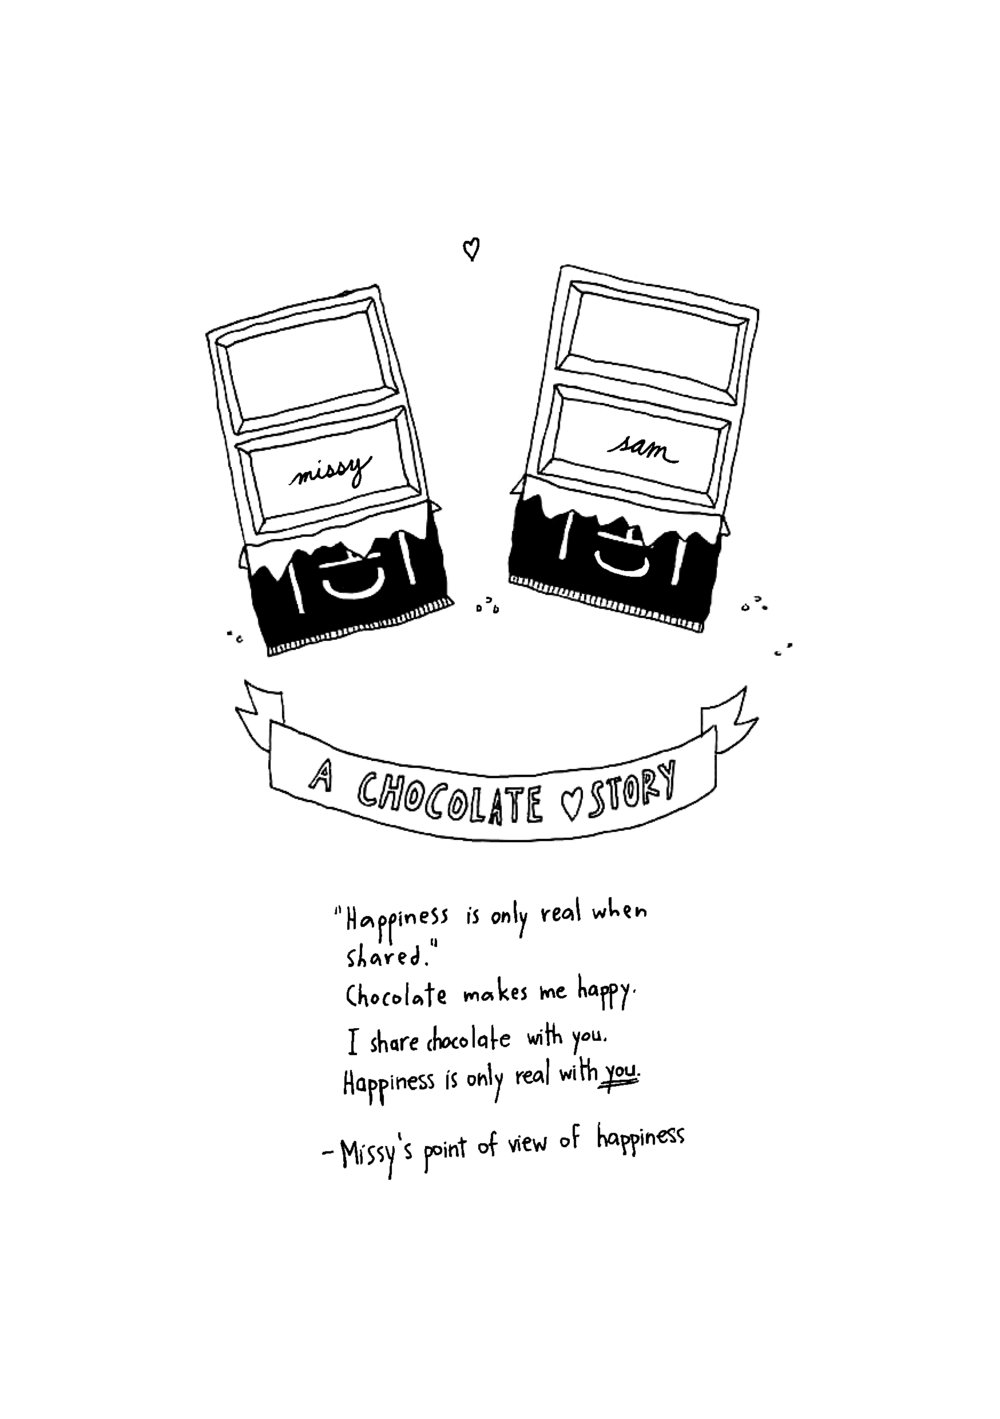 missy
sam
A CHOCOLATE ♡ STORY
"Happiness is only real when
shared."
Chocolate makes me happy.
I share chocolate with you.
Happiness is only real with you.
- Missy's point of view of happiness